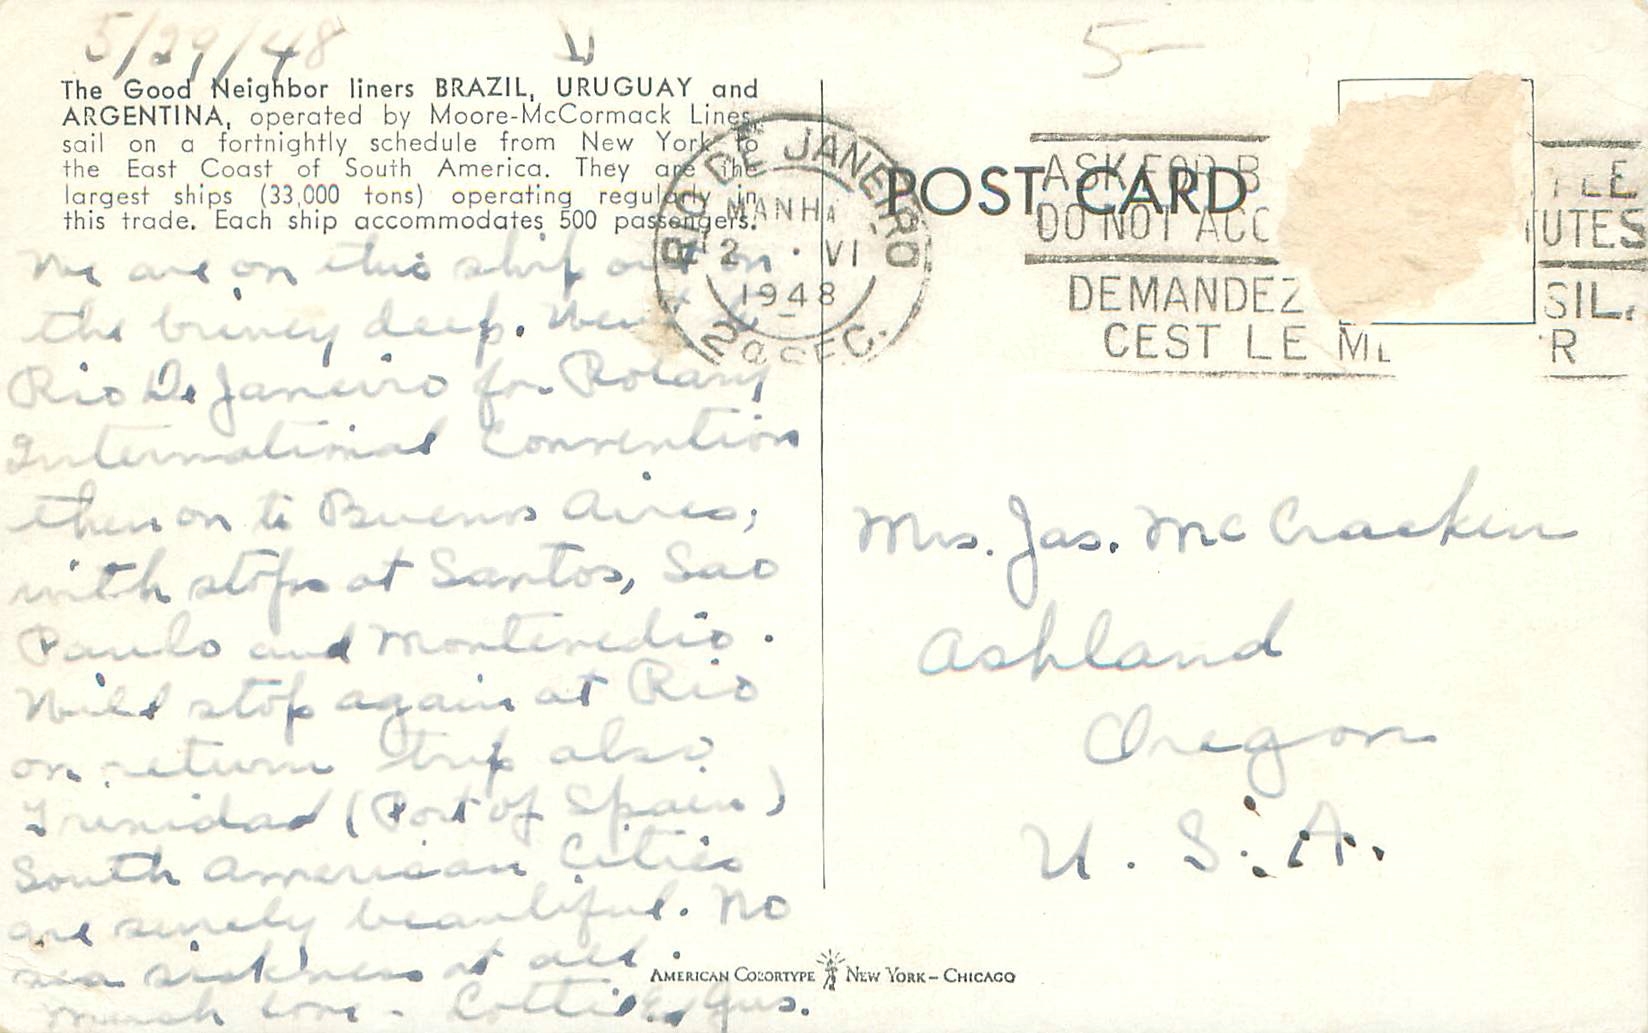 5/29/48
5-
The Good Neighbor liners BRAZIL, URUGUAY and
ARGENTINA, operated by Moore-McCormack Lines,
sail on a fortnightly schedule from New York to
the East Coast of South America. They are the
largest ships (33,000 tons) operating regularly in
this trade. Each ship accommodates 500 passengers.
We are on this ship out on
the briney deep. Went to
Rio De Janeiro for Rotary
International Convention
then on to Buenos Aires,
with stops at Santos, Sao
Paulo and Montevedio.
Will stop again at Rio
on return trip also
Trinidad (Port of Spain)
South American Cities
are surely beautiful. No
sea sickness at all.
Much love - Lottie & Gus.
RIO DE JANEIRO
MANHÃ
2 · VI
1948
2ª SEC.
POST CARD
ASK FOR B
DO NOT ACC UTES
DEMANDEZ SIL.
CEST LE R
Mrs. Jas. McCracken
Ashland
Oregon
U. S. A.
AMERICAN COLORTYPE NEW YORK - CHICAGO